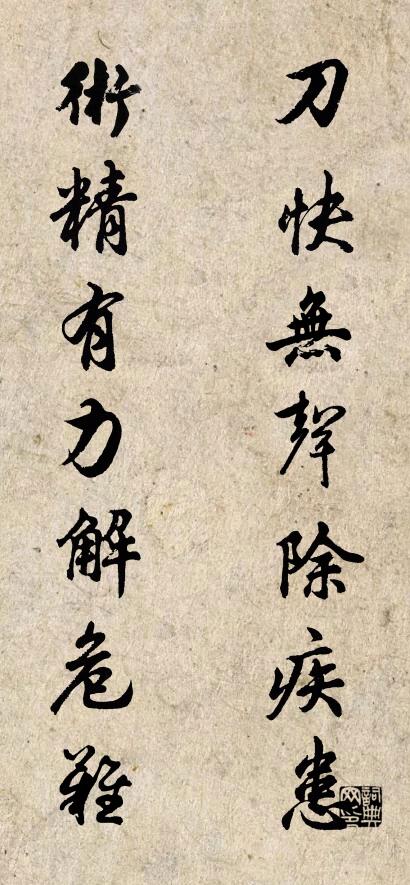 刀快無聲除疾患
術精有力解危難
詞典网印